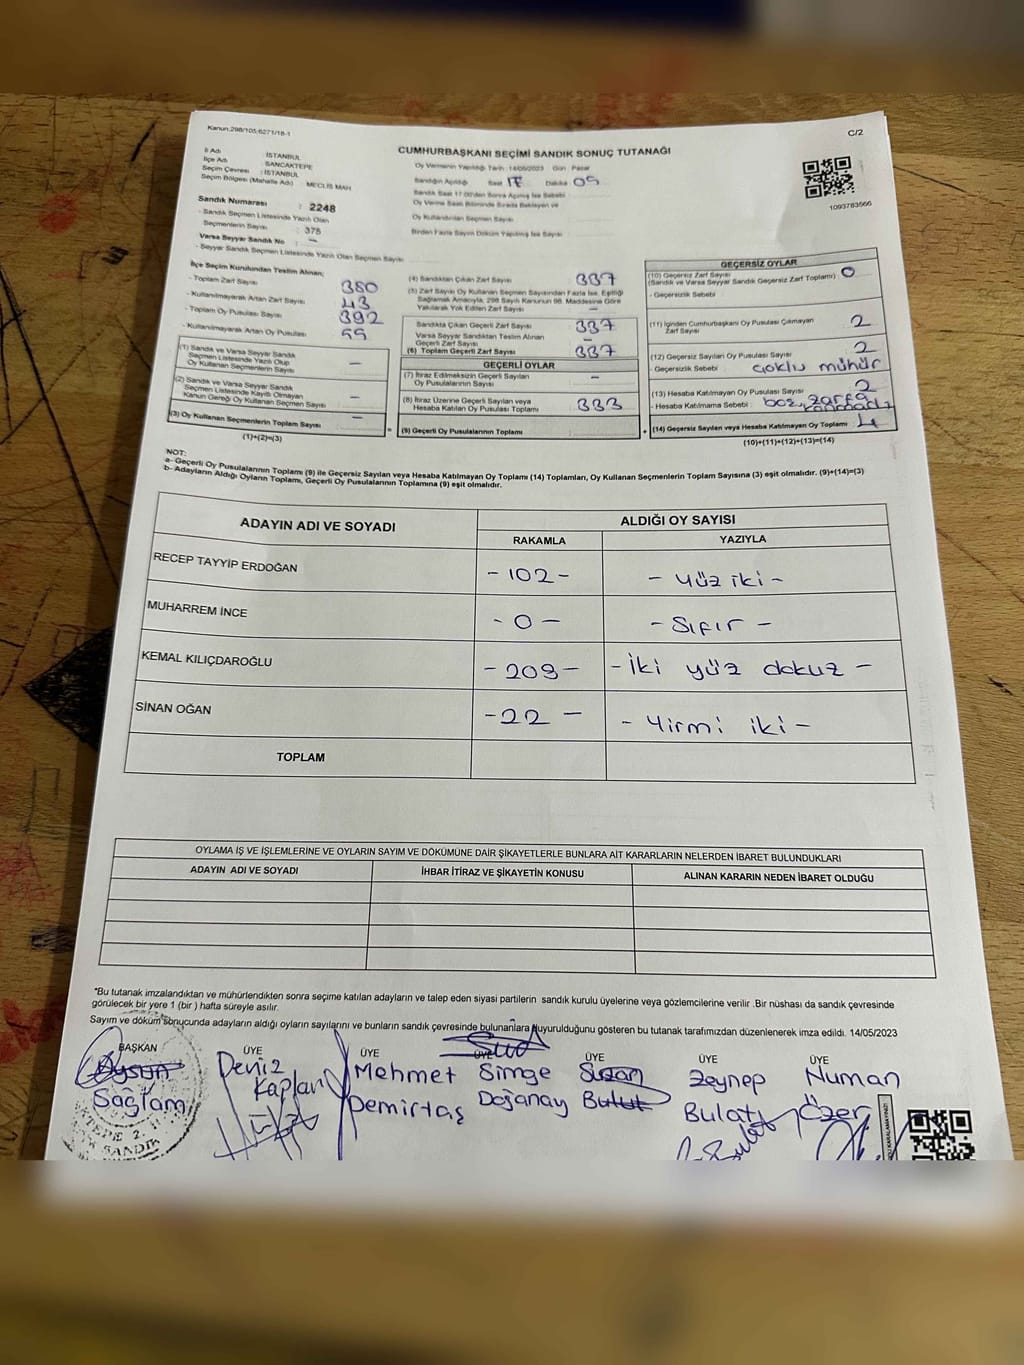 Kanun:298/105,6271/18-1
C/2
CUMHURBAŞKANI SEÇİMİ SANDIK SONUÇ TUTANAĞI
İl Adı : İSTANBUL
İlçe Adı : SANCAKTEPE
Seçim Çevresi : İSTANBUL
Seçim Bölgesi (Mahalle Adı) : MECLİS MAH
Oy Vermenin Yapıldığı Tarih : 14/05/2023 Gün : Pazar
Sandığın Açıldığı Saat 17 Dakika 05
Sandık Saat 17:00'den Sonra Açılmış İse Sebebi
Oy Verme Saati Bitiminde Sırada Bekleyen ve
Oy Kullandırılan Seçmen Sayısı
Birden Fazla Sayım Döküm Yapılmış İse Sayısı
1093783566
Sandık Numarası : 2248
- Sandık Seçmen Listesinde Yazılı Olan
Seçmenlerin Sayısı : 375
Varsa Seyyar Sandık No : -
- Seyyar Sandık Seçmen Listesinde Yazılı Olan Seçmen Sayısı
İlçe Seçim Kurulundan Teslim Alınan;
- Toplam Zarf Sayısı 380
- Kullanılmayarak Artan Zarf Sayısı 43
- Toplam Oy Pusulası Sayısı 392
- Kullanılmayarak Artan Oy Pusulası 55
(1) Sandık ve Varsa Seyyar Sandık
Seçmen Listesinde Yazılı Olup
Oy Kullanan Seçmenlerin Sayısı -
(2) Sandık ve Varsa Seyyar Sandık
Seçmen Listesinde Kayıtlı Olmayan
Kanun Gereği Oy Kullanan Seçmen Sayısı -
(3) Oy Kullanan Seçmenlerin Toplam Sayısı -
(1)+(2)=(3)
(4) Sandıktan Çıkan Zarf Sayısı 337
(5) Zarf Sayısı Oy Kullanan Seçmen Sayısından Fazla İse, Eşitliği
Sağlamak Amacıyla, 298 Sayılı Kanunun 98. Maddesine Göre
Yakılarak Yok Edilen Zarf Sayısı -
Sandıkta Çıkan Geçerli Zarf Sayısı 337
Varsa Seyyar Sandıktan Teslim Alınan
Geçerli Zarf Sayısı -
(6) Toplam Geçerli Zarf Sayısı 337
GEÇERLİ OYLAR
(7) İtiraz Edilmeksizin Geçerli Sayılan
Oy Pusulalarının Sayısı -
(8) İtiraz Üzerine Geçerli Sayılan veya
Hesaba Katılan Oy Pusulası Toplamı 333
(9) Geçerli Oy Pusulalarının Toplamı
GEÇERSİZ OYLAR
(10) Geçersiz Zarf Sayısı 0
(Sandık ve Varsa Seyyar Sandık Geçersiz Zarf Toplamı)
- Geçersizlik Sebebi
(11) İçinden Cumhurbaşkanı Oy Pusulası Çıkmayan
Zarf Sayısı 2
(12) Geçersiz Sayılan Oy Pusulası Sayısı 2
- Geçersizlik Sebebi çoklu mühür
(13) Hesaba Katılmayan Oy Pusulası Sayısı 2
- Hesaba Katılmama Sebebi : boş, zarfa konmadı
(14) Geçersiz Sayılan veya Hesaba Katılmayan Oy Toplamı 4
(10)+(11)+(12)+(13)=(14)
NOT:
a- Geçerli Oy Pusulalarının Toplamı (9) ile Geçersiz Sayılan veya Hesaba Katılmayan Oy Toplamı (14) Toplamları, Oy Kullanan Seçmenlerin Toplam Sayısına (3) eşit olmalıdır. (9)+(14)=(3)
b- Adayların Aldığı Oyların Toplamı, Geçerli Oy Pusulalarının Toplamına (9) eşit olmalıdır.
ADAYIN ADI VE SOYADI
ALDIĞI OY SAYISI
RAKAMLA
YAZIYLA
RECEP TAYYİP ERDOĞAN - 102 - - Yüz iki -
MUHARREM İNCE - 0 - - Sıfır -
KEMAL KILIÇDAROĞLU - 209 - - İki yüz dokuz -
SİNAN OĞAN - 22 - - Yirmi iki -
TOPLAM
OYLAMA İŞ VE İŞLEMLERİNE VE OYLARIN SAYIM VE DÖKÜMÜNE DAİR ŞİKAYETLERLE BUNLARA AİT KARARLARIN NELERDEN İBARET BULUNDUKLARI
ADAYIN ADI VE SOYADI
İHBAR İTİRAZ VE ŞİKAYETİN KONUSU
ALINAN KARARIN NEDEN İBARET OLDUĞU
*Bu tutanak imzalandıktan ve mühürlendikten sonra seçime katılan adayların ve talep eden siyasi partilerin sandık kurulu üyelerine veya gözlemcilerine verilir .Bir nüshası da sandık çevresinde
görülecek bir yere 1 (bir ) hafta süreyle asılır.
Sayım ve döküm sonucunda adayların aldığı oyların sayılarını ve bunların sandık çevresinde bulunanlara duyurulduğunu gösteren bu tutanak tarafımızdan düzenlenerek imza edildi. 14/05/2023
BAŞKAN ÜYE ÜYE ÜYE ÜYE ÜYE ÜYE
Aysun Deniz Mehmet Simge Suzan Zeynep Numan
Sağlam Kaplan Demirtaş Doğanay Bulut Bulat Özer